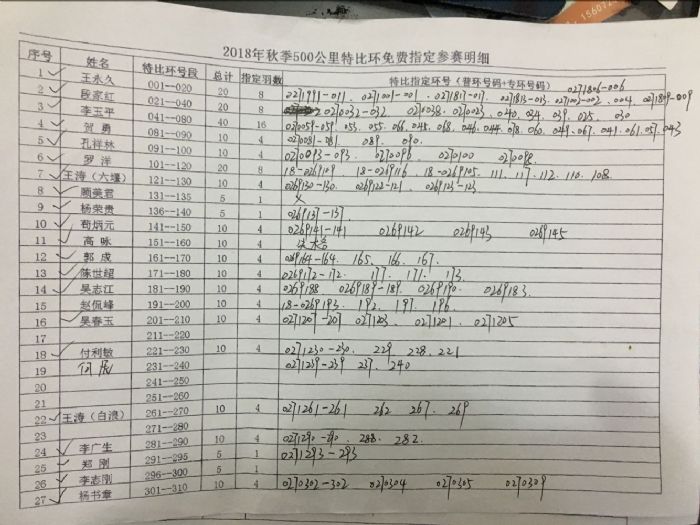 2018年秋季500公里特比环免费指定参赛明细
序号 姓名 特比环号段 总计 指定羽数 特比指定环号（普环号码+专环号码） 0271806-006
1 王永久 001--020 20 8 0271991-011. 0271001-001. 0271817-017. 0271813-013. 0271002-002. 004. 0271809-009
2 段家红 021--040 20 8 0270032-032. 0270038. 0270023. 040. 034. 039. 025. 030
3 李玉平 041--080 40 16 0270059-059. 053. 055. 066. 045. 068. 046. 044. 078. 060. 049. 067. 041. 061. 057. 043
4 贺 勇 081--090 10 4 0270081-081. 089. 090.
5 孔祥林 091--100 10 4 0270093-093. 0270096. 0270100 0270098.
6 罗 洋 101--120 20 8 18-0269109 18-0269116. 18-0269105. 111. 117. 112. 110. 108.
7 王涛（六堰） 121--130 10 4 0269130-130. 0269122-121. 0269123-123.
8 顾美君 131--135 5 1
9 杨荣贵 136--140 5 1 0269137-137.
10 荀炳元 141--150 10 4 0269141-141 0269142 0269143 0269145
11 高 咏 151--160 10 4
12 郭 成 161--170 10 4 0269164-164. 165. 166. 167.
13 陈世绍 171--180 10 4 0269172-172. 177. 171. 173.
14 吴志江 181--190 10 4 0269188 0269189-189. 0269190. 0269183.
15 赵侃峰 191--200 10 4 18-0269193. 192. 197. 196.
16 吴春玉 201--210 10 4 0271207-207 0271203. 0271201. 0271205
17 211--220
18 付利敏 221--230 10 4 0271230-230. 229. 228. 221
19 何展 231--240 0271239-239 237. 240
20 241--250
21 251--260
22 王涛（白浪） 261--270 10 4 0271261-261 262 267. 269
23 271--280
24 李广生 281--290 10 4 0271290-290. 288. 282.
25 郑 刚 291--295 5 1 0271293-293
26 李志刚 296--300 5 1
27 杨书章 301--310 10 4 0270302-302 0270304 0270305 0270309